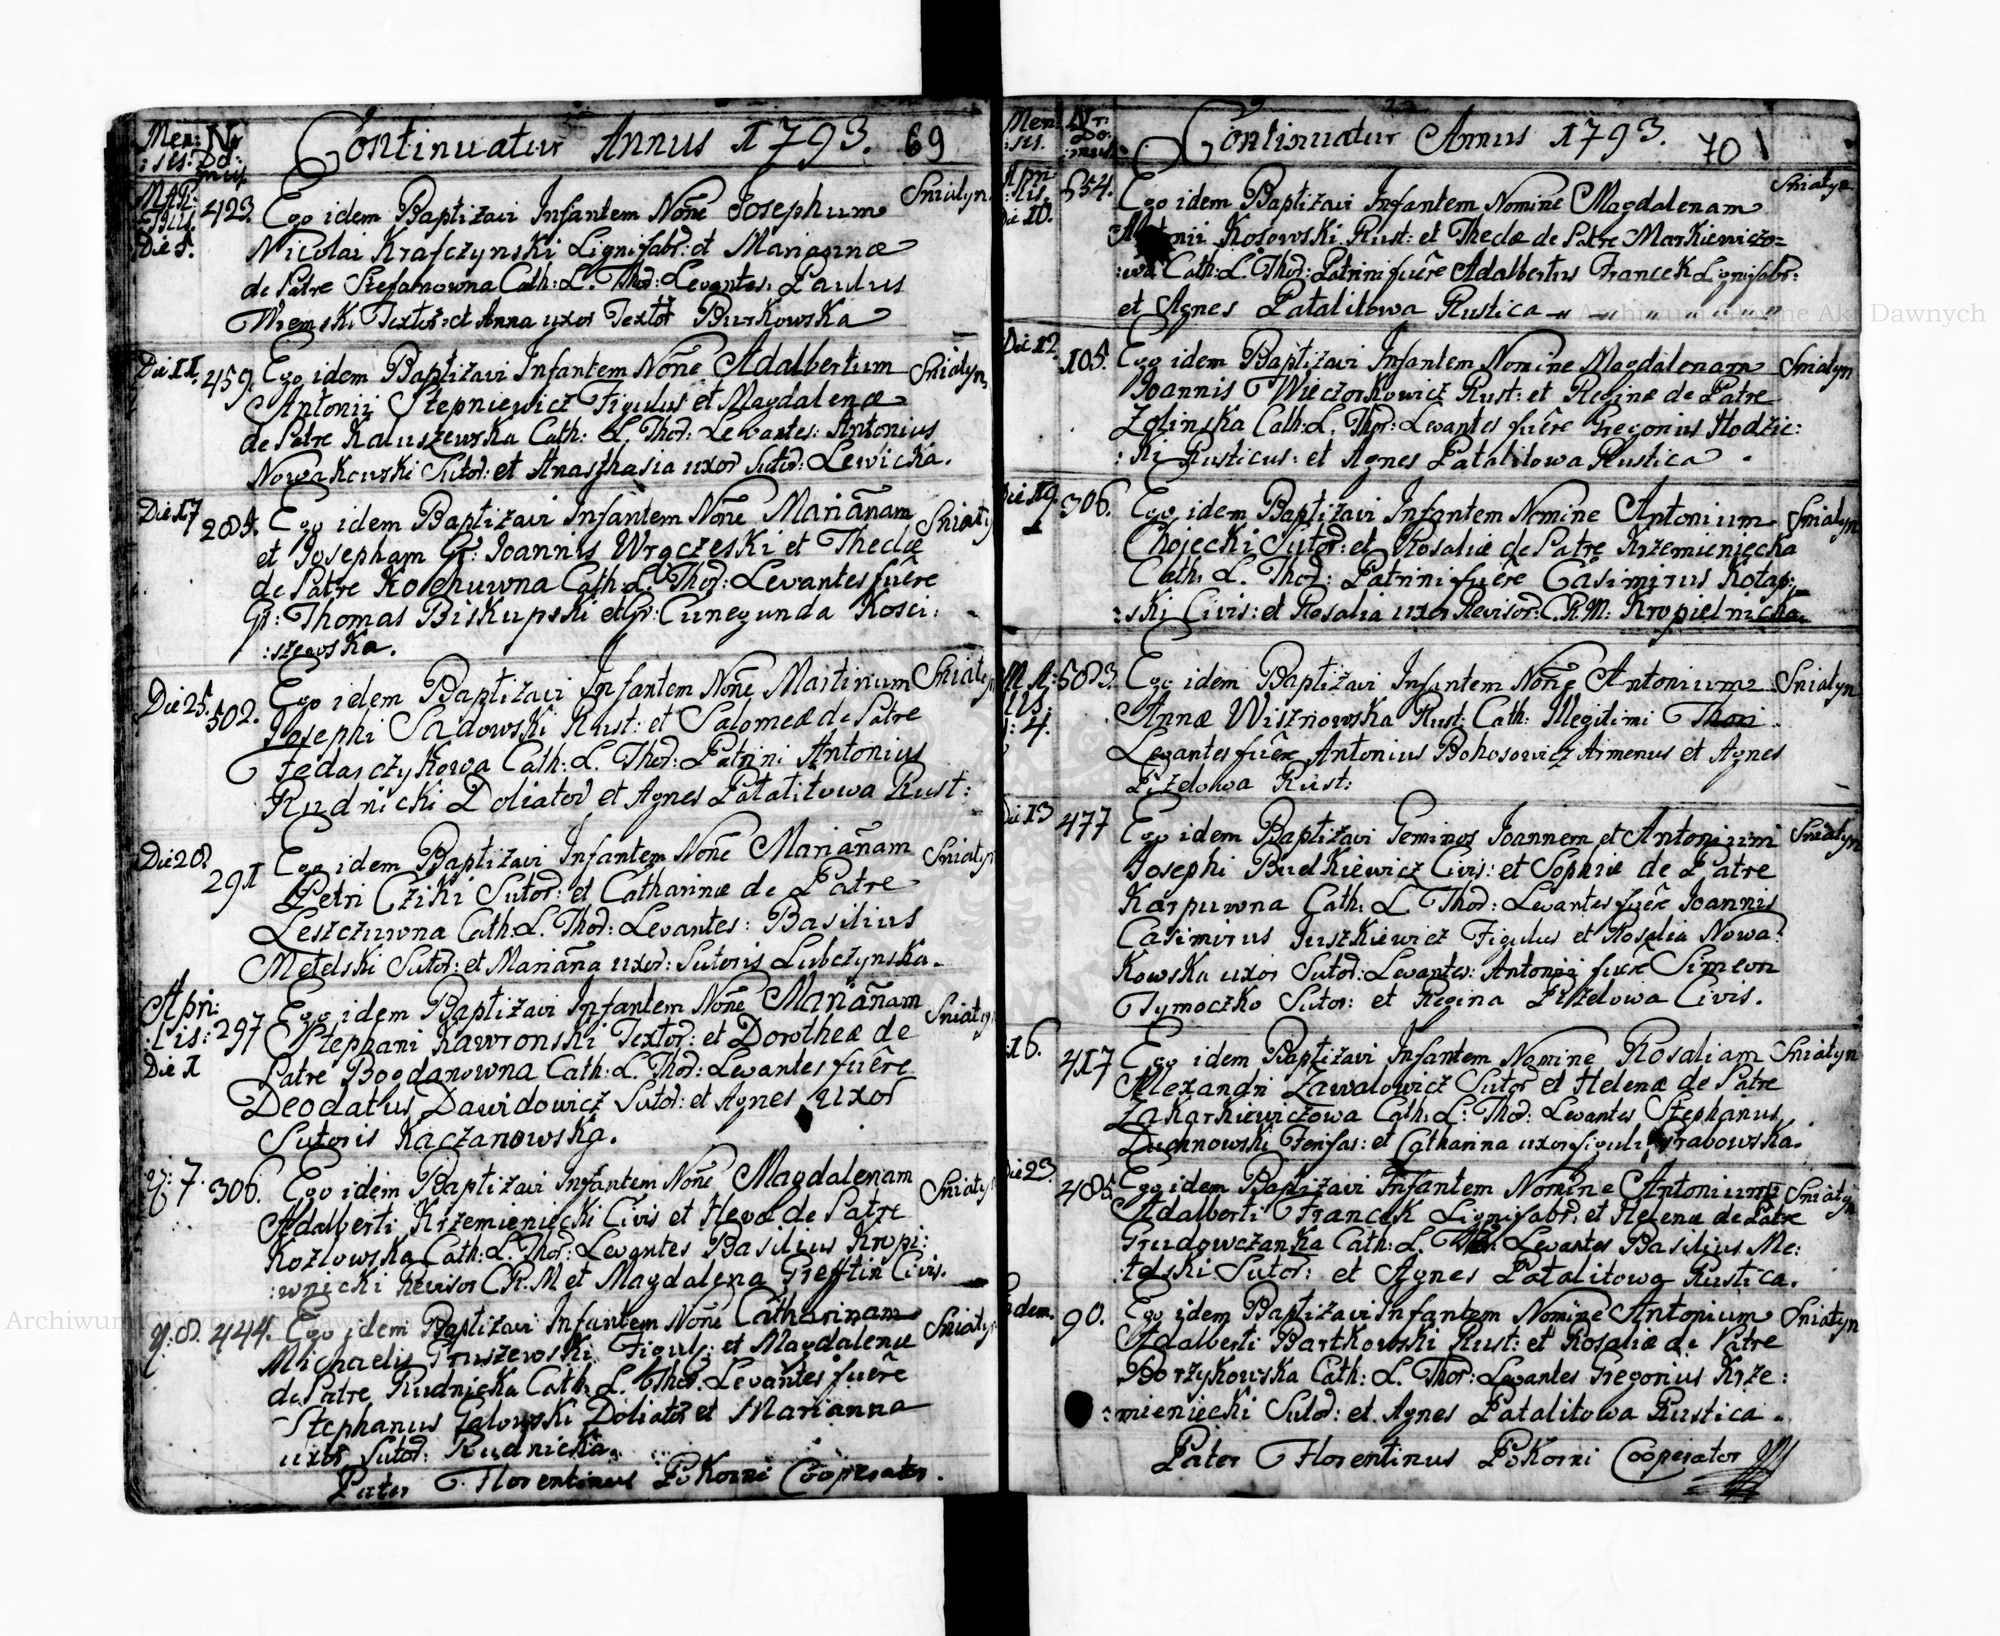 Men: Nr
:sis: Do:
mus
Continuatur Annus 1793. 69
Mar:
:tius.
Die 5. 423. Ego idem Baptizavi Infantem Nõne Josephum Sniatyn.
Nicolai Krafczynski Lignifabr: et Mariannæ
de Patre Stefanowna Cath: L. Thor: Levantes: Paulus
Wremski Textor: et Anna uxor Textor Burkowska
Die 11. 459. Ego idem Baptizavi Infantem Nõne Adalbertum Sniatyn.
Antonii Stepniewicz Figulus et Magdalenæ
de Patre Kaluszewska Cath: L. Thor: Levantes: Antonius
Nowakowski Sutor: et Anasthasia uxor Sutor: Lewicka.
Die 17 285. Ego idem Baptizavi Infantem Nõne Mariãnam Sniaty
et Josepham Gr: Joannis Wrączeski et Theclæ
de Patre Cath: L. Thor: Levantes fuêre
Gr: Thomas Biskupski et gr: Cunegunda Kosci:
:szewska.
Die 25. 502. Ego idem Baptizavi Infantem Nõne Martinum Sniatyn
Josephi Sadowski Rust: et Salomeæ de Patre
Fedasczykowa Cath: L. Thor: Patrini Antonius
Rudnicki Doliator et Agnes Patalitowa Rust:
Die 28 291 Ego idem Baptizavi Infantem Nõne Mariãnam Sniatyn
Petri Cziki Sutor: et Catharinæ de Patre
Leszczuwna Cath: L. Thor: Levantes: Basilius
Metelski Sutor: et Mariãna uxor: Sutoris Lubczynska.
Apri:
:lis: 297 Ego idem Baptizavi Infantem Nõne Mariãnam Sniatyn
Die 1 Stephani Kawronski Textor: et Dorotheæ de
Patre Bogdanowna Cath: L. Thor: Levantes fuêre
Deodatus Dawidowicz Sutor: et Agnes uxor
Sutoris Kaczanowska.
7. 306. Ego idem Baptizavi Infantem Nõne Magdalenam Sniaty
Adalberti Krzemieniecki Civis et Hevæ de Patre
Kozlowska Cath: L. Thor: Levantes Basilius Kropi:
:wnicki Revisor C.R.M et Magdalena Greftin Civis.
8. 444. Ego idem Baptizavi Infantem Nõne Catharinam Sniaty
Michaelis Pruszewski Figuli: et Magdalenæ
de Patre Rudnicka Cath: L. Thor: Levantes fuêre
Stephanus Galowski Doliator et Marianna
uxor Sutor: Rudnicka.
Pater Florentinus Pokorni Cooperator.
Men: Nr:
:sis. Do:
:mus
Continuatur Annus 1793. 70
Apri
:lis.
Die 10. 554. Ego idem Baptizavi Infantem Nomine Magdalenam Sniatyn
Kosowski Rust: et Theclæ de Patre Markiewiczo=
:wa Cath: L. Thor: Patrini fuêre Adalbertus Francek Lignifabr:
et Agnes Patalitowa Rustica
Die 12 105. Ego idem Baptizavi Infantem Nomine Magdalenam Sniatyn
Joannis Wieczorkowicz Rust: et Reginæ de Patre
Zolinska Cath: L. Thor: Levantes fuêre Gregorius Hodzic:
:ki Rusticus: et Agnes Patalitowa Rustica
Die 19. 306. Ego idem Baptizavi Infantem Nomine Antonium Sniatyn
Chojecki Sutor: et Rosaliæ de Patre Krzemieniecka
Cath: L. Thor: Patrini fuêre Casimirus Kotap:
:ski Civis: et Rosalia uxor Revisor: C.R.M: Kropielnicka.
Ma:
ius: 4. 503. Ego idem Baptizavi Infantem Nõne Antonium Sniatyn
Annæ Wisznowska Rust: Cath: Illegitimi Thori.
Levantes fuêre Antonius Bohosowicz Armenus et Agnes
Pizelowa Rust:
Die 13 477 Ego idem Baptizavi Geminos Joannem et Antonium Sniatyn
Josephi Budkiewicz Civis: et Sophiæ de Patre
Karpuwna Cath: L Thor: Levantes fuêre Joannis
Casimirus Juszkiewicz Figulus et Rosalia Nowa:
Kowska uxor Sutor: Levantes: Antonii fuêre Simeon
Tymoczko Sutor: et Regina Pizelowa Civis.
:16. 417 Ego idem Baptizavi Infantem Nomine Rosaliam Sniatyn
Alexandri Zawalowicz Sutor et Helenæ de Patre
Zakarkiewiczowa Cath: L: Thor: Levantes Stephanus
Duchnowski et Catharina uxor figuli Grabowska.
Die 23. 485. Ego idem Baptizavi Infantem Nomine Antonium Sniatyn
Adalberti Francek Lignifabr: et Helenæ de Patre
Grudowczanka Cath: L. Thor: Levantes Basilius Me:
:telski Sutor: et Agnes Patalitowa Rustica.
Eodem. 90. Ego idem Baptizavi Infantem Nomine Antonium Sniatyn
Adalberti Bartkowski Rust: et Rosaliæ de Patre
Borzykowska Cath: L. Thor: Levantes Gregorius Krze:
:mieniecki Sutor: et Agnes Patalitowa Rustica.
Pater Florentinus Pokorni Cooperator
Archiwum Główne Akt Dawnych
Archiwum Główne Akt Dawnych